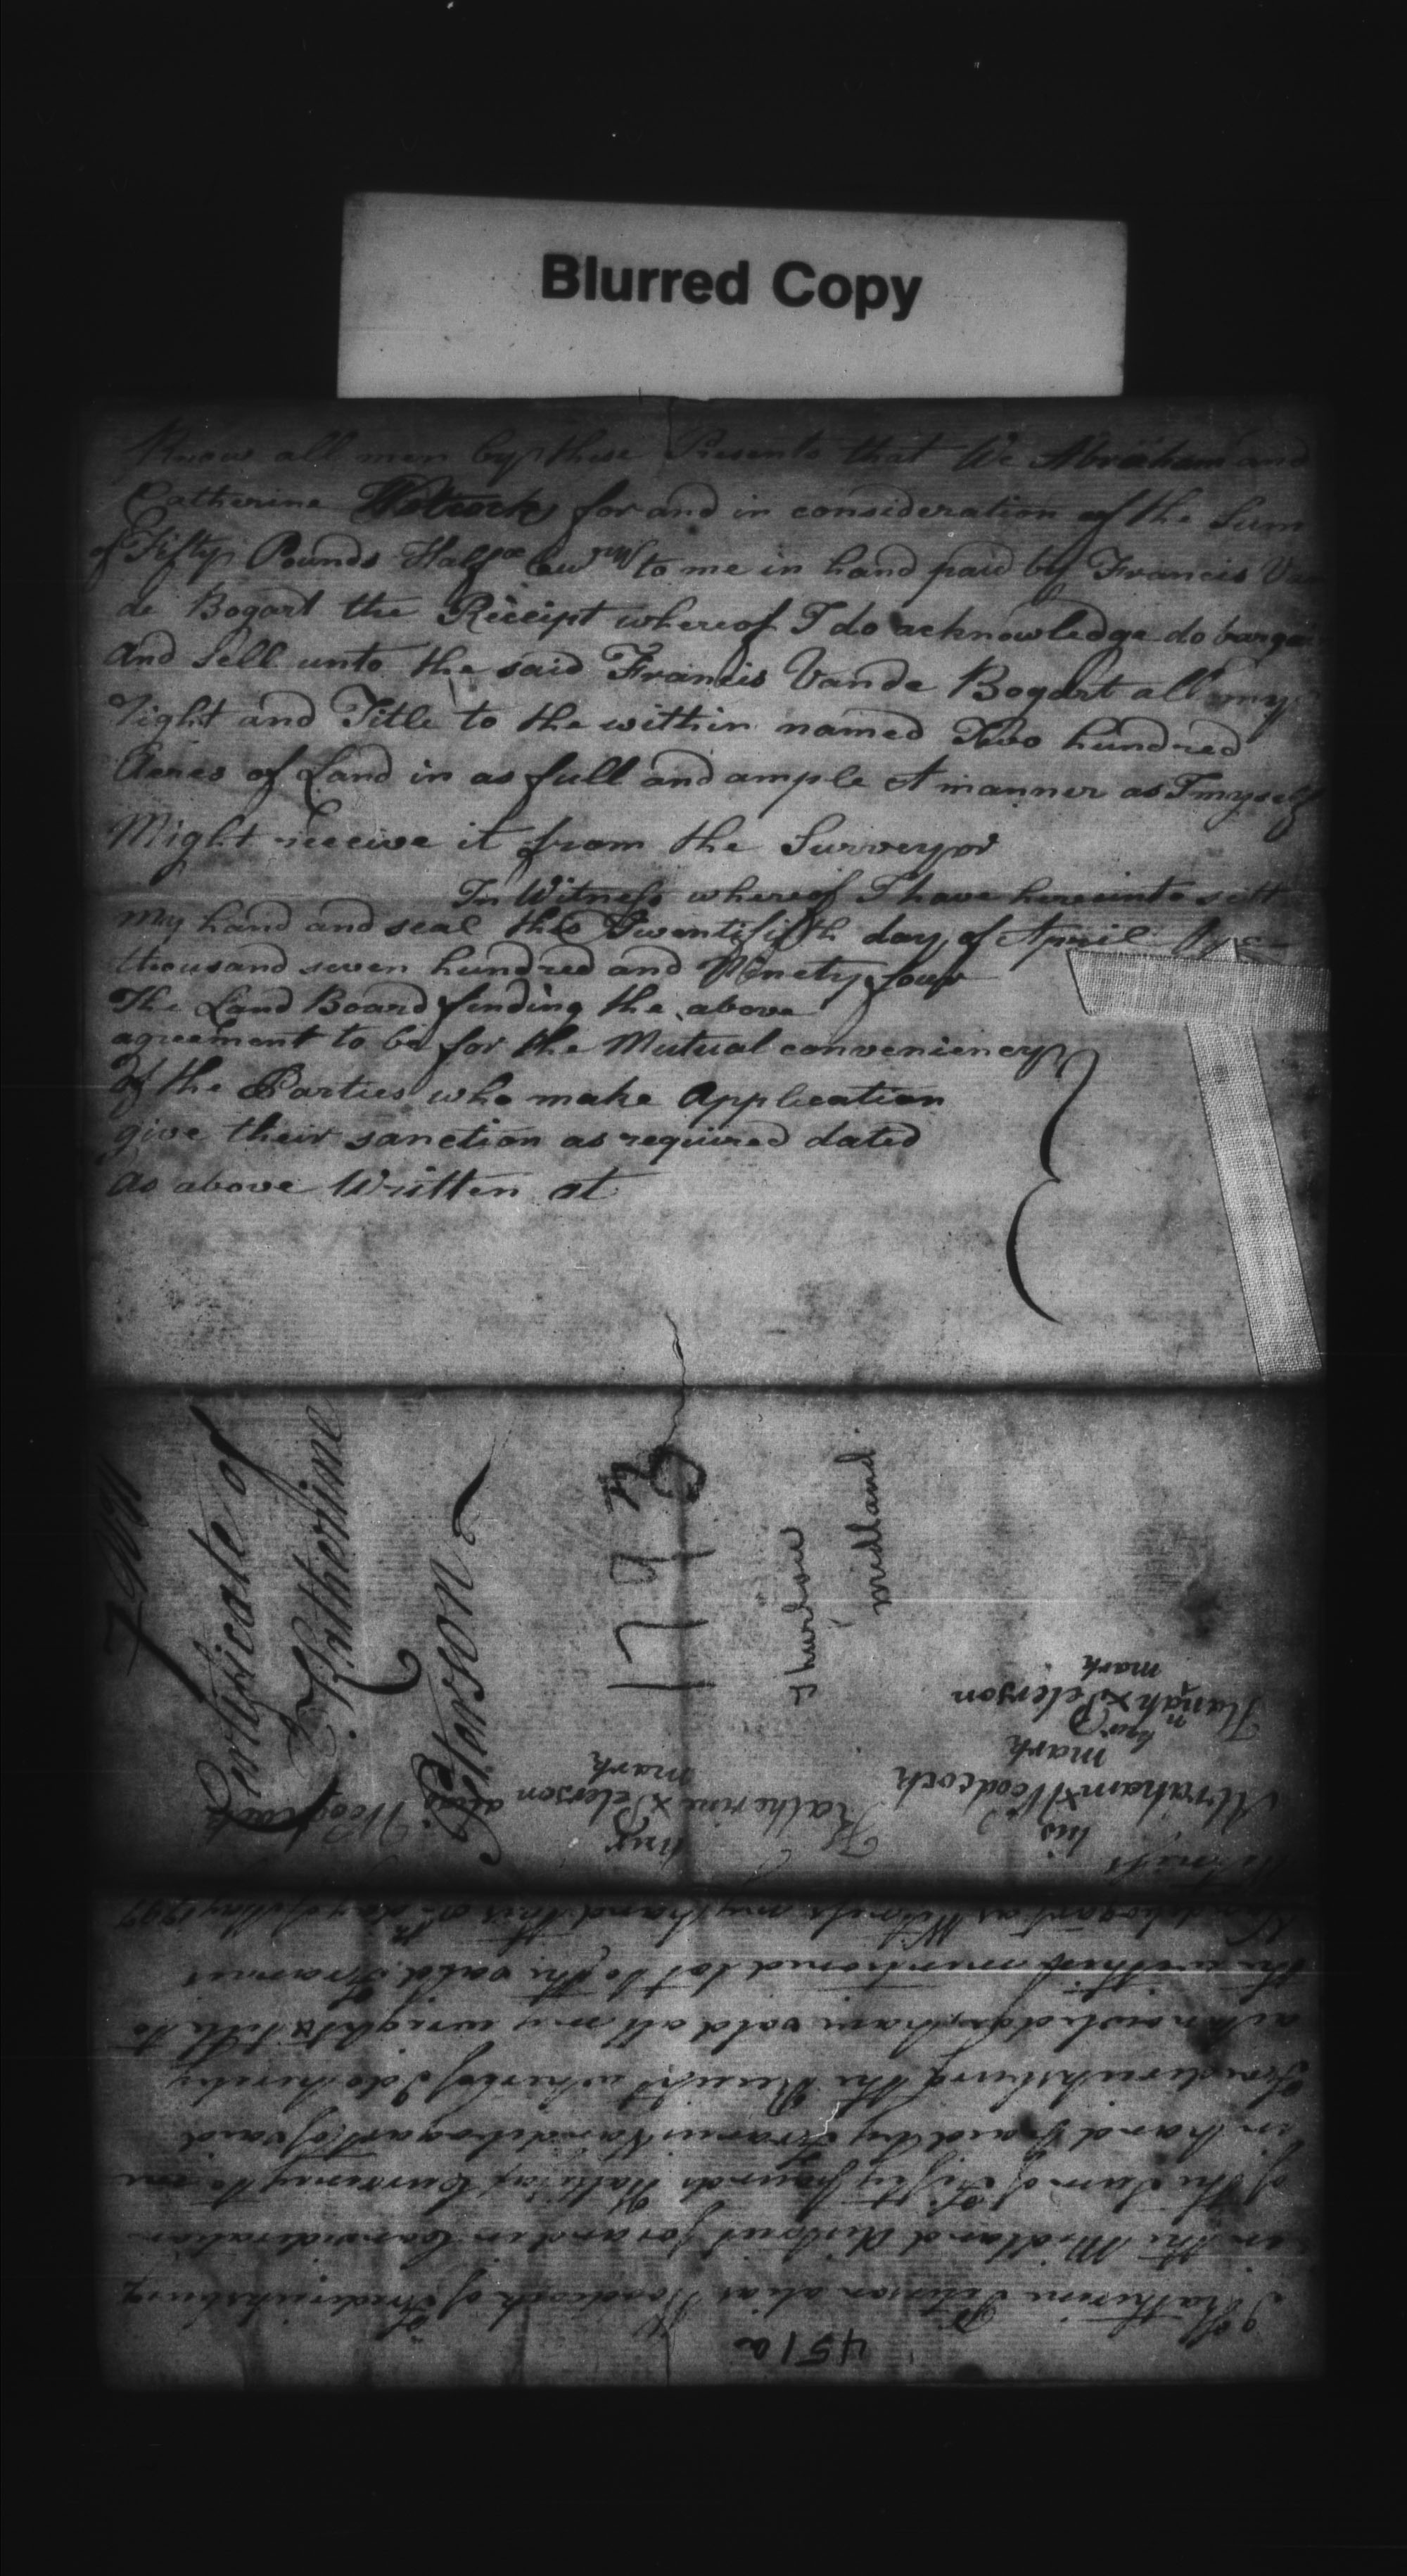 Blurred Copy
Know all men by these Presents that We Abraham and
Catherine for and in consideration of the Sum
of Fifty Pounds Halfax Curr to me in hand paid by Francis Van
de Bogart the Receipt whereof I do acknowledge do bargain
And Sell unto the said Francis Vande Bogart all my
right and Title to the within named Two hundred
Acres of Land in as full and ample A manner as I myself
Might receive it from the Surveyor
In Witness whereof I have hereunto sett
my hand and seal this Twentififth day of April One
thousand seven hundred and Ninety four
The Land Board finding the above
agreement to be for the Mutual conveniency
of the Parties who make Application
give their sanction as required dated
as above Written at
Certificate of
Katherine
Peterson
1793
Thurlow
midland
451a
I Katherine Peterson alias Woodcock of Fredericksburg
in the Midland District for and in Consideration
of the Sum of Fifty pounds Halifax Currency to me
in hand paid by Francis Vandebogart of said
Fredericksburg the Receipt whereof I do hereby
acknowledge, have sold all my wright & title to
the within mentioned lot to the said Francis
Vandebogart as Witness my hand this day of May 1797
Witness
his
Abraham x Woodcock
mark
her
Hanah x Peterson
mark
her
Katherine x Peterson alias Woodcock
mark